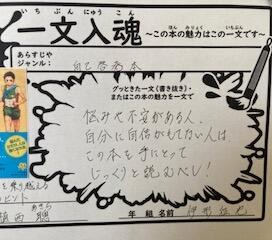 いちぶんにゅうこん
一文入魂
ほん みりょく いちぶん
～この本の魅力はこの一文です～
あらすじや
ジャンル：自己啓発本
グッときた一文（書き抜き）・
またはこの本の魅力を一文で
悩みや不安がある人、
自分に自信がもてない人は
この本を手にとって
じっくりと読むべし！
を乗り越える
ヒント
あきら
西 聰
年 組 名前